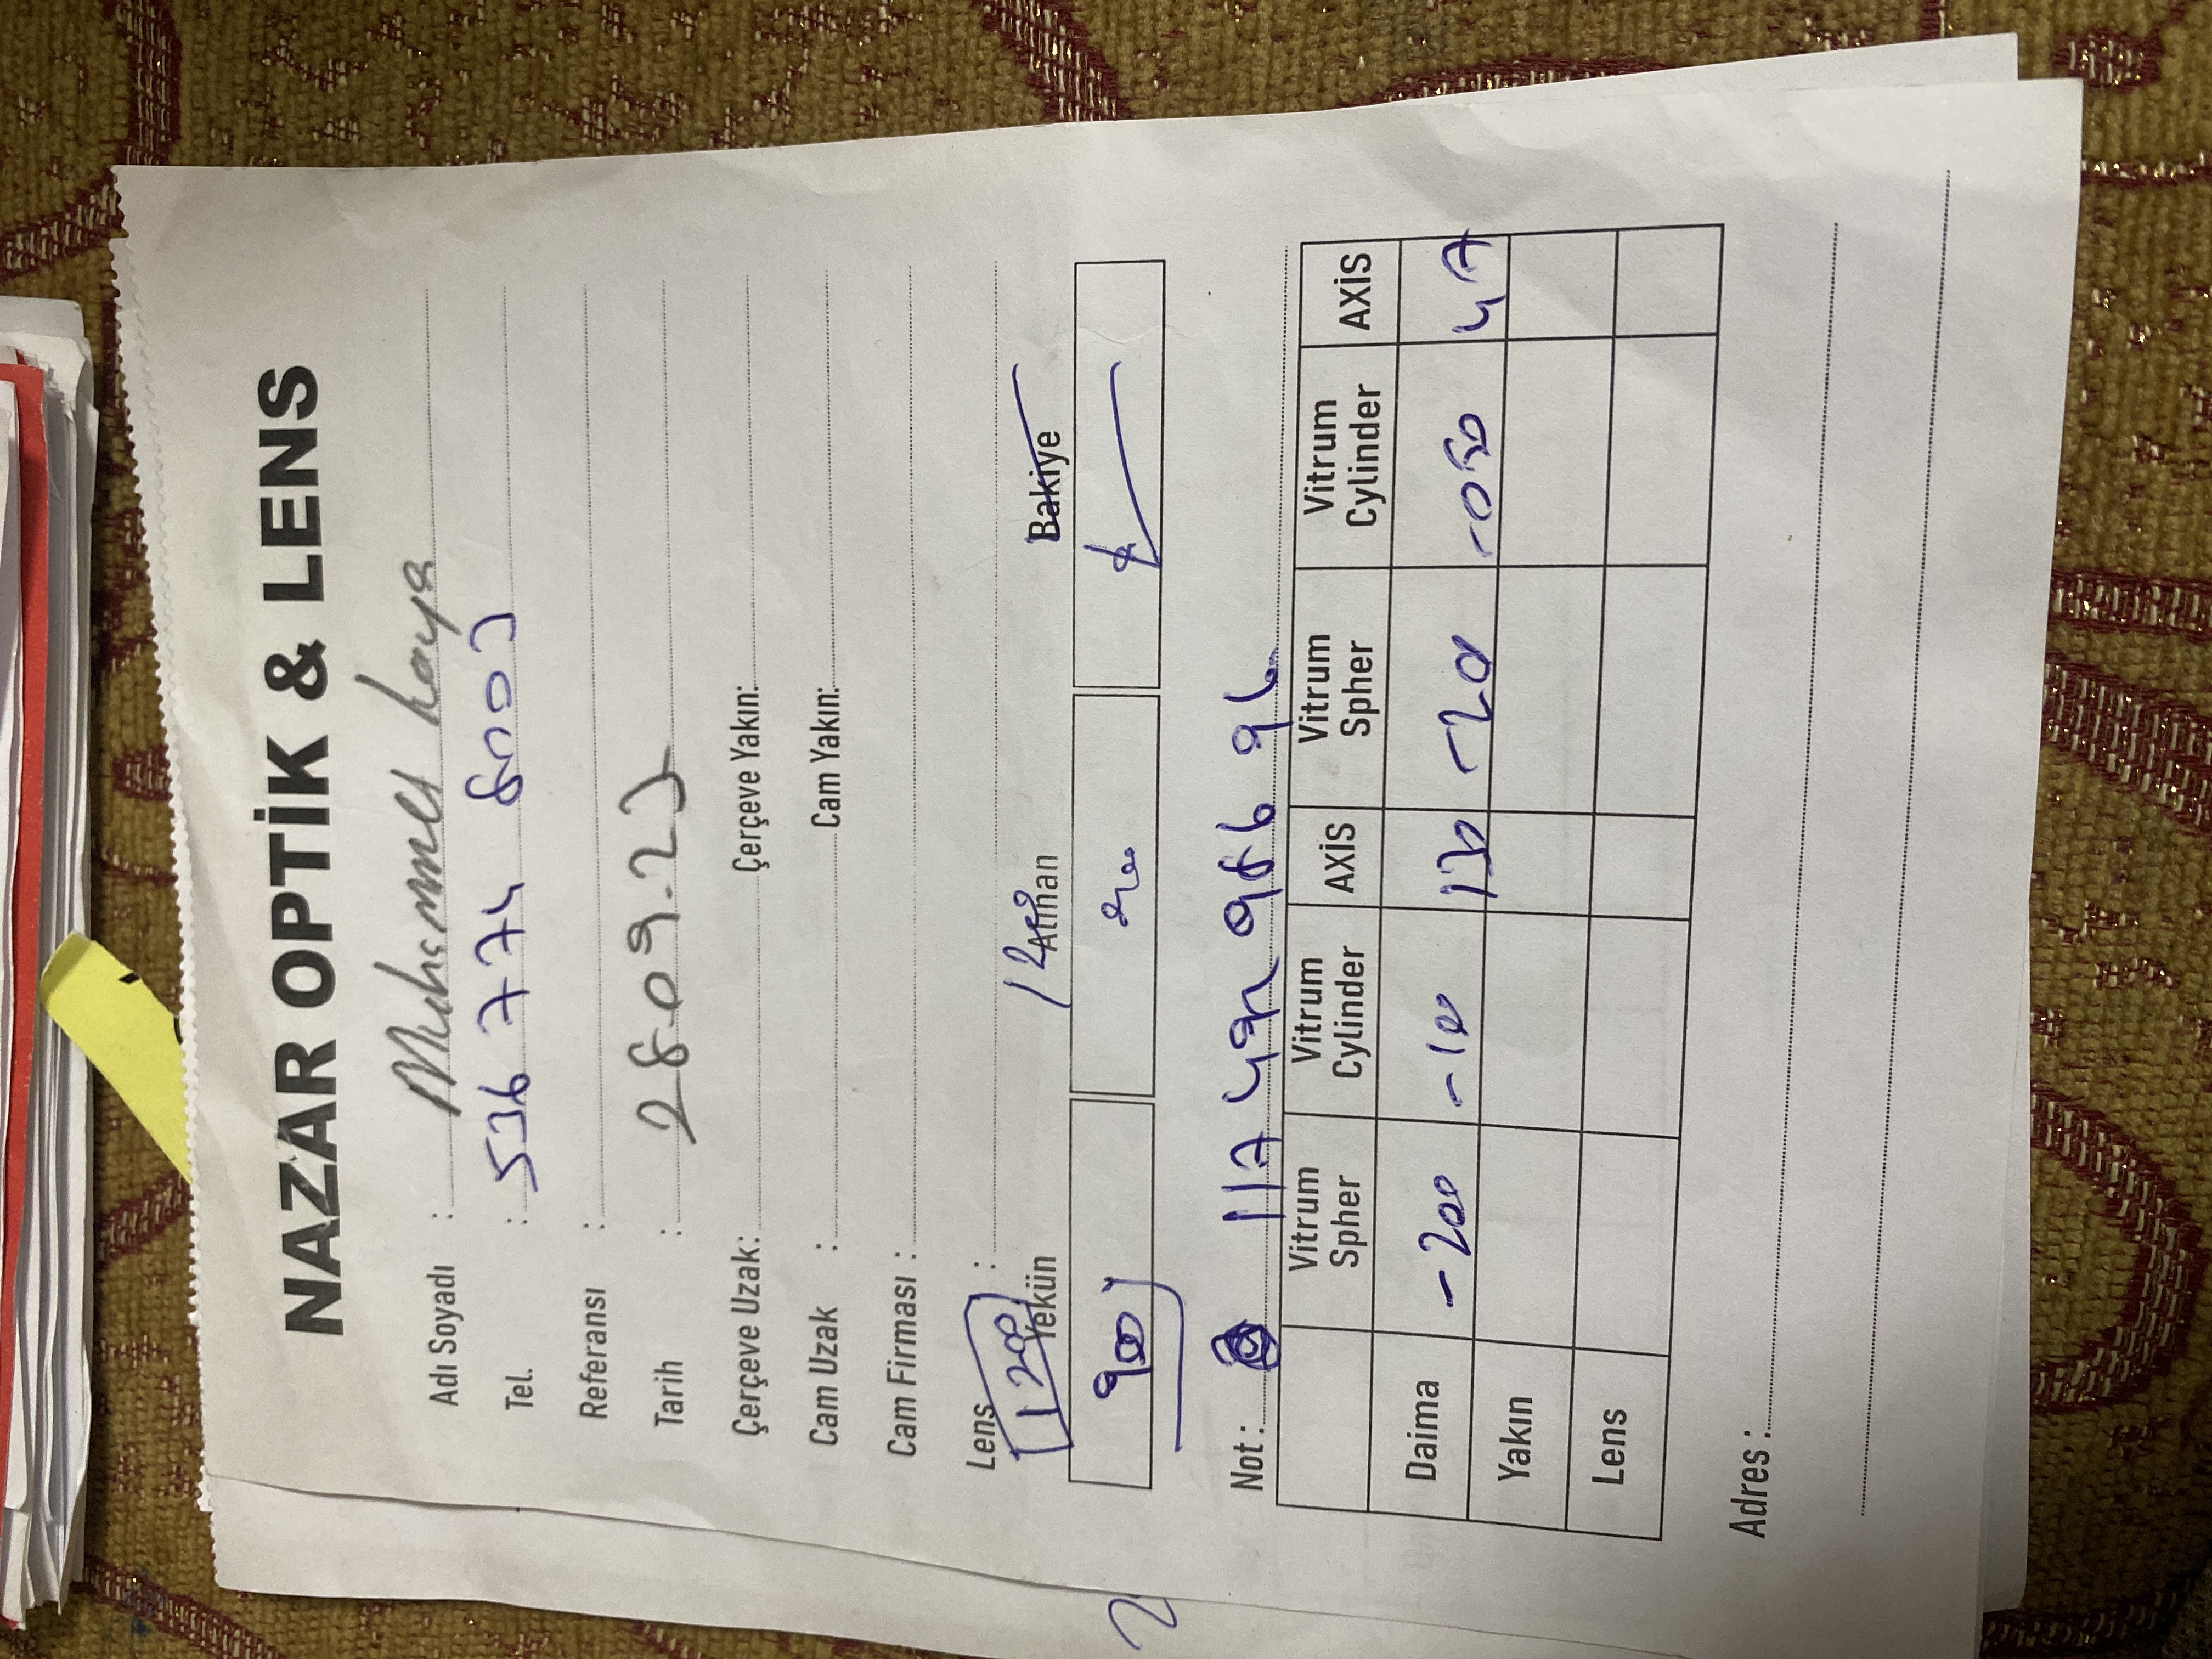 NAZAR OPTİK & LENS
Adı Soyadı : Muhammed Kaya
Tel. : 536 774
Referansı :
Tarih : 28.09.23
Çerçeve Uzak: Çerçeve Yakın:
Cam Uzak : Cam Yakın:
Cam Firması :
Lens :
1200 1200
Yekün Alınan Bakiye
900
Not : 117 986 96
Vitrum Spher Vitrum Cylinder AXİS Vitrum Spher Vitrum Cylinder AXİS
Daima -200 -100 130 -200 -050 47
Yakın
Lens
Adres :